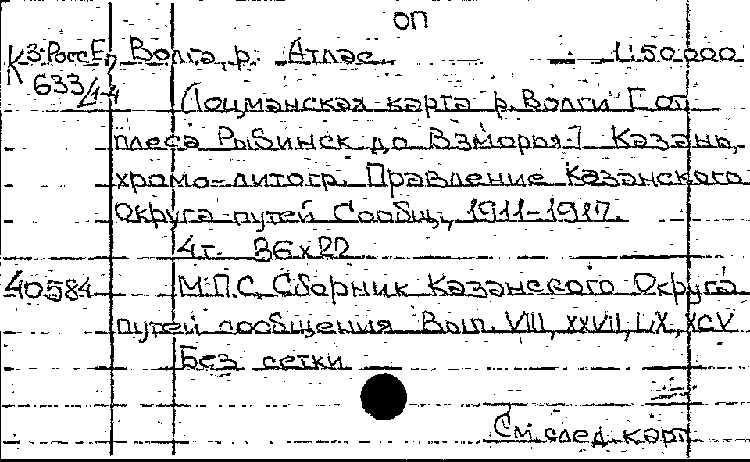 оп
К 3-РоссЕ, Волга, р. Атлас. — 1:50.000
633/1-4
Лоцманская карта р. Волги [от
плеса Рыбинск до Взморья.] Казань,
хромо-литогр. Правление Казанского
Округа путей Сообщ., 1911-1917.
4т. 36x22
40584 М.П.С. Сборник Казанского Округа
путей сообщения Вып. VIII, XXVII, LIX, XCV
Без сетки
См. след. карт.